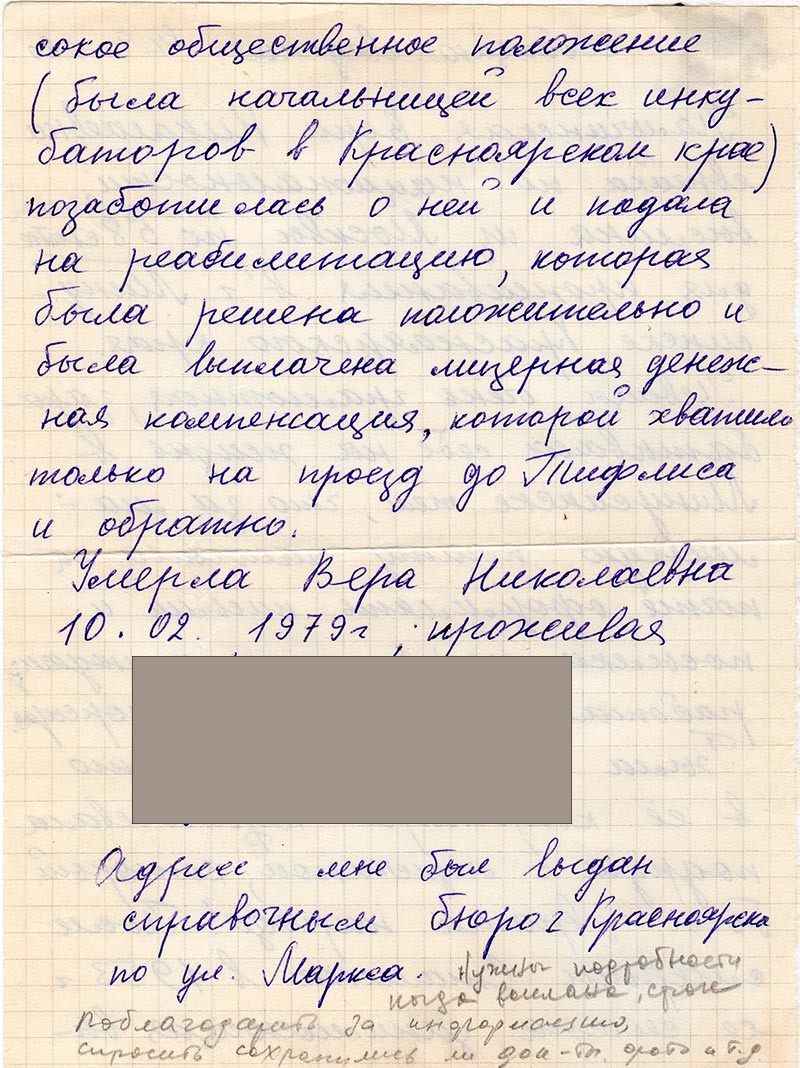 сокое общественное положение
(была начальницей всех инку-
баторов в Красноярском крае)
позаботилась о ней и подала
на реабилитацию, которая
была решена положительно и
была выплачена мизерная денеж-
ная компенсация, которой хватило
только на проезд до Тифлиса
и обратно.
Умерла Вера Николаевна
10.02. 1979г, проживая
Адрес мне был выдан
справочным бюро г Красноярска
по ул. Маркса.
Нужны подробности
когда выслана, срок
поблагодарить за информацию,
спросить сохранились ли док-ты. фото и т.д.